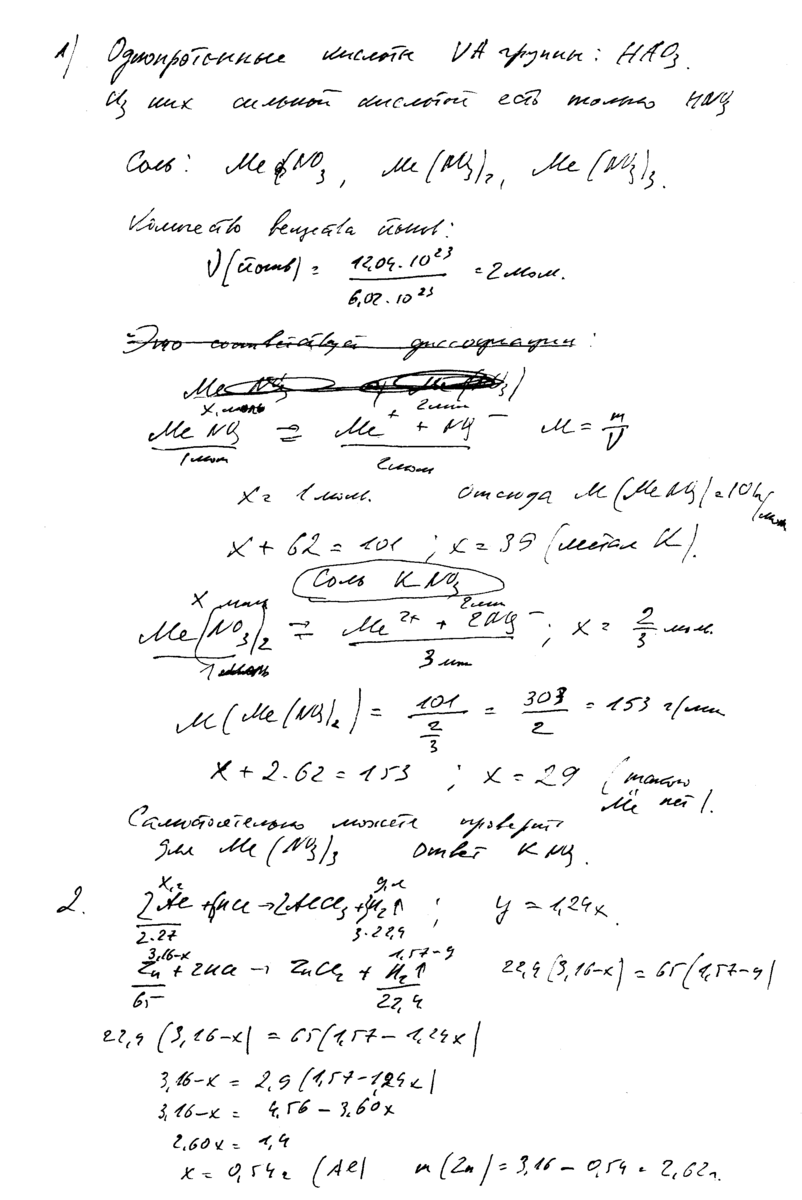 1) Однопротонные кислоты VA группы: HAO₃.
Из них сильной кислотой есть только HNO₃
Соль: MeNO₃, Me(NO₃)₂, Me(NO₃)₃.
Количество вещества йонов:
ν(йонов) = 12,04·10²³ / 6,02·10²³ = 2 мол.
Это соответствует диссоциации:
x моль 2 мол
MeNO₃ ⇄ Me⁺ + NO₃⁻ M = m/ν
1 мол 2 мол
x = 1 мол. отсюда M(MeNO₃) = 101 г/мол
x + 62 = 101 ; x = 39 (метал K).
Соль KNO₃
x мол 2 мол
Me(NO₃)₂ ⇄ Me²⁺ + 2NO₃⁻ ; x = 2/3 мол.
1 моль 3 мол
M(Me(NO₃)₂) = 101 / (2/3) = 303/2 = 153 г/мол
x + 2·62 = 153 ; x = 29 (такого
Me нет).
Самостоятельно можете проверить
для Me(NO₃)₃ Ответ KNO₃.
2. x г y л
2Al + 6HCl → 2AlCl₃ + 3H₂↑ ; y = 1,24x.
2·27 3·22,4
3,16-x 1,57-y
Zn + 2HCl → ZnCl₂ + H₂↑ 22,4(3,16-x) = 65(1,57-y)
65 22,4
22,4(3,16-x) = 65(1,57-1,24x)
3,16-x = 2,9(1,57-1,24x)
3,16-x = 4,56-3,60x
2,60x = 1,4
x = 0,54 г (Al) m(Zn) = 3,16-0,54 = 2,62 г.